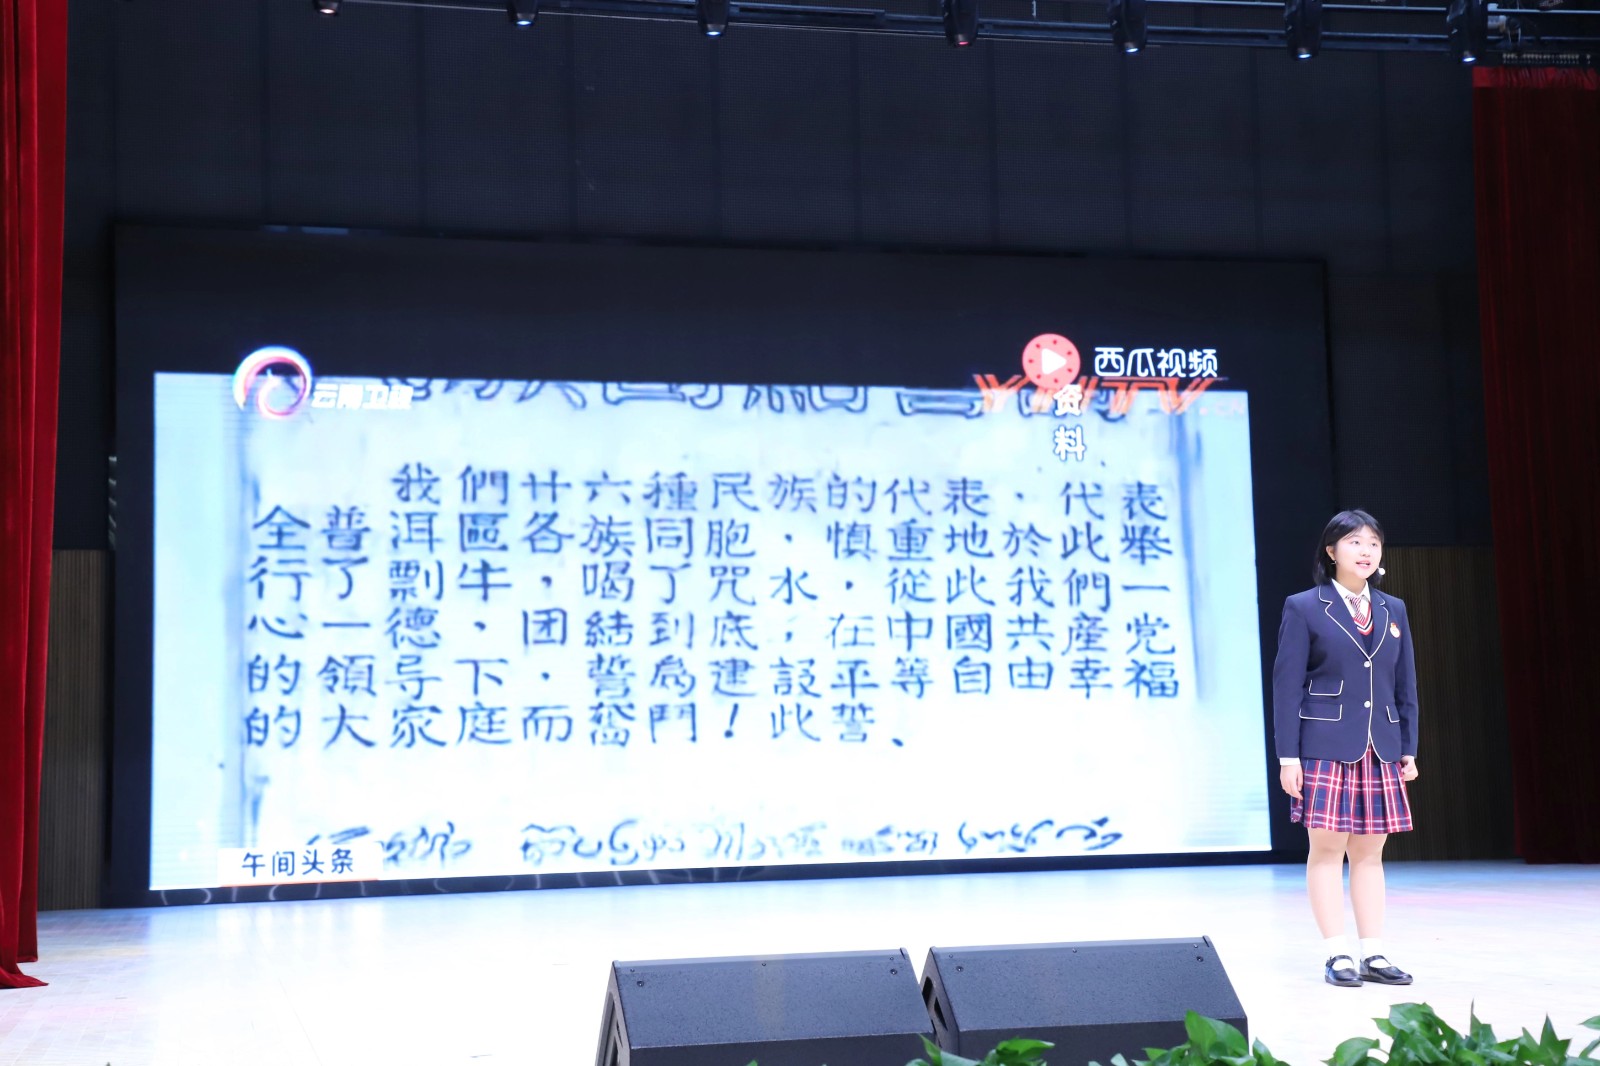 云南卫视
西瓜视频
资料
我們廿六種民族的代表，代表
全普洱區各族同胞，慎重地於此舉
行了剽牛，喝了咒水，從此我們一
心一德、团結到底，在中國共産党
的領导下，誓為建設平等自由幸福
的大家庭而奮鬥！此誓、
午间头条